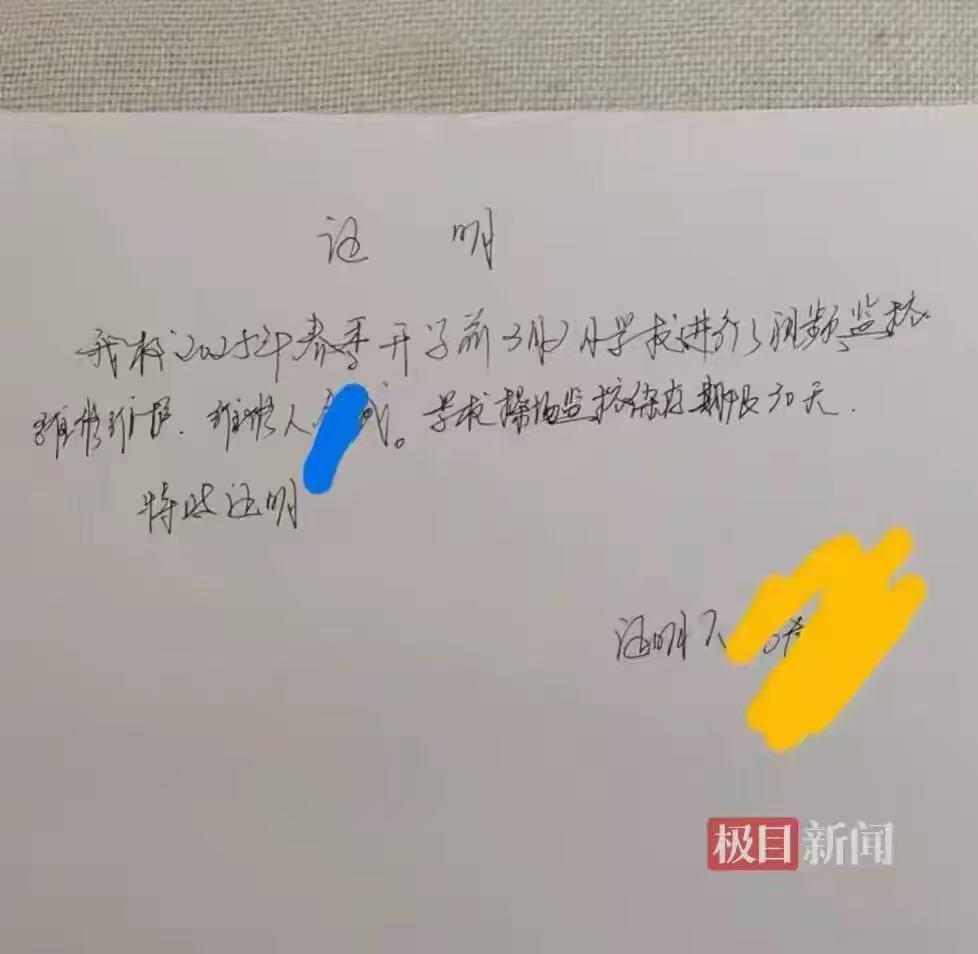 证 明
我校2025年春季开学前3月2日学校进行了视频监控
维修维护. 维修人 成。学校操场监控保存期限30天.
特此证明
证明人
极目新闻